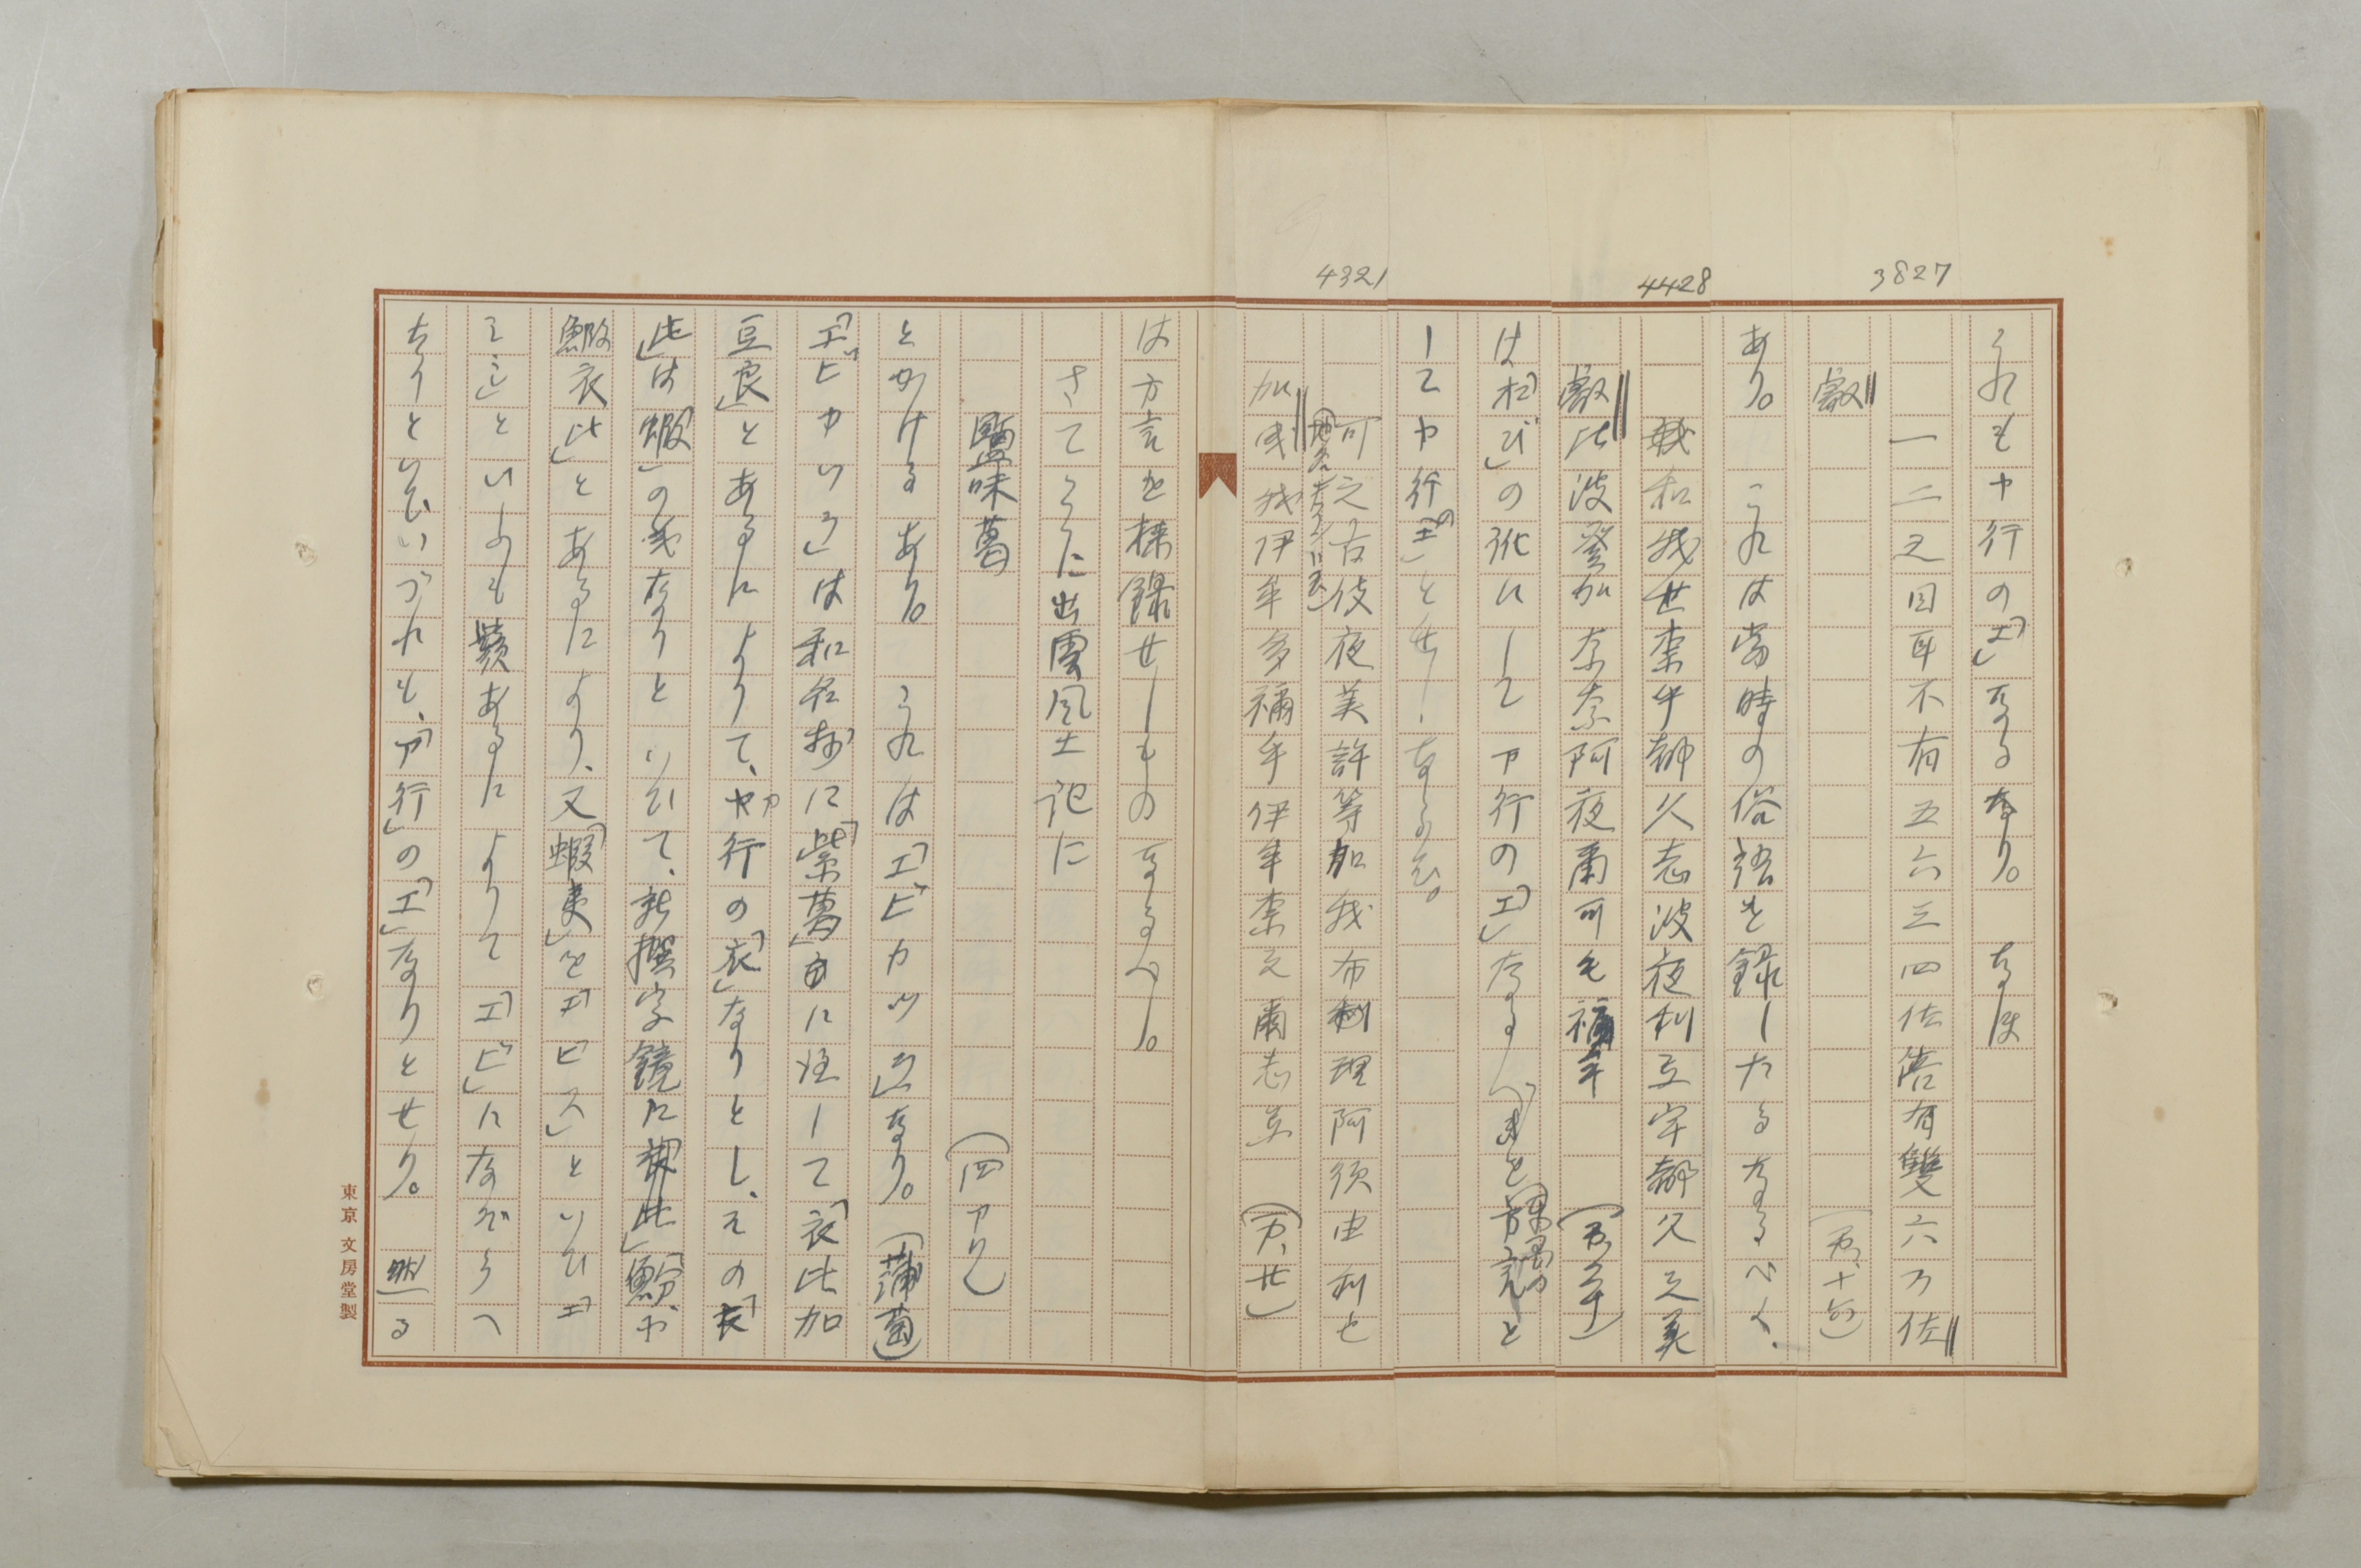 3827
4428
4321
これもヤ行の「エ」なるなり。なほ
一二之目耳不有五六三四佐倍有雙六乃佐
叡 (万、十六)
あり。これは當時の俗語を録したるなるべく、
我和我世奈乎都久志波夜利弖宇都久之美
叡比波登加奈奈阿夜爾可毛禰牟
は「オビ」の訛にしてヤ行の「エ」なるべきを方言と
してヤ行の「エ」とせし
可之古伎夜美許等加我布理阿須由利也
加曳我伊牟多禰乎伊牟奈之爾志弖 (万、廿)
は方言を採録せしものなるべし。
さてこゝに出雲風土記に
鹽味葛 (四ヤリ)
とかけるあり。これは「エビカツラ」なり。(蒲萄)
「エビカツラ」は和名抄に「紫葛」に注して「衣比加
豆良」とあるによりて、ア行の「衣」なりとし、その「衣
比」は「蝦」の義なりといひて、新撰字鏡に
鰕衣比」とあるにより、又「蝦夷」を「エビス」といひ「エ
ミシ」といふも鬚あるによりて「エビ」になぞらへ
たりといひいづれも、「ア行」の「エ」なりとせり。然る
東京文房堂製